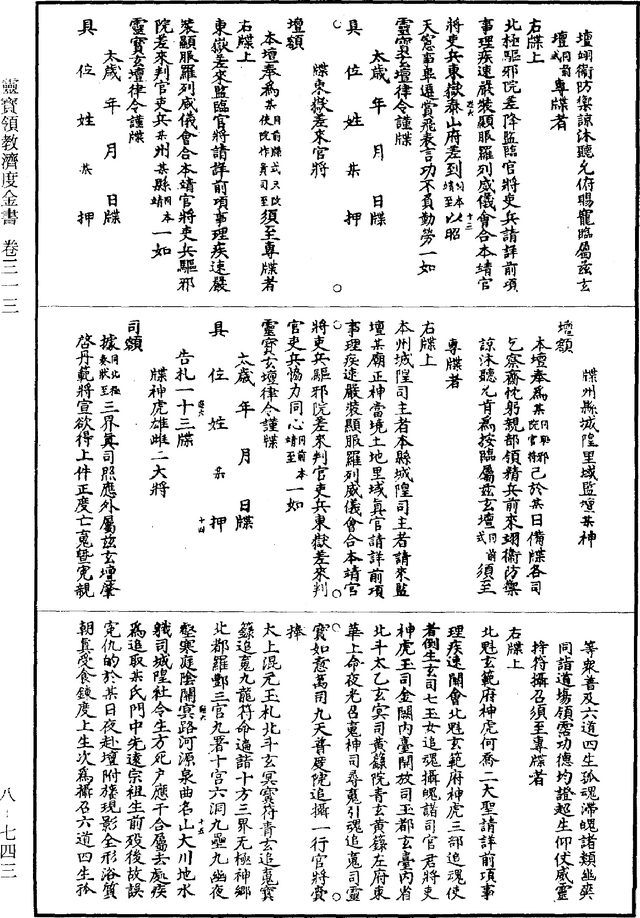 壇翊衛防禦諒沐聽允俯賜寵臨屬茲玄
壇同前式專牒者
右牒上
北極驅邪院差降監臨官將吏兵請詳前項
事理疾速嚴裝顯服羅列威儀會合本靖官
將吏兵東嶽泰山府差到同本靖至以昭
天憲事畢遷賞飛表言功不負勤勞一如
靈寶玄壇律令謹牒
太歲 年 月 日牒
具 位 姓 某 押
牒東嶽差來官將
壇額
本壇奉為某須至專牒者
右牒上
東嶽差來監臨官將請詳前項事理疾速嚴
裝顯服羅列威儀會合本靖官將吏兵驅邪
院差來判官吏兵某州某縣同本靖一如
靈寶玄壇律令謹牒
太歲 年 月 日牒
具 位 姓 某 押
牒州縣城隍里域監壇某神
壇額
本壇奉為某同驅邪院官將已於某日備牒各司
乞察齋忱躬親部領精兵前來翊衛防禦
諒沐聽允肯為按臨屬茲玄壇同前式須至
專牒者
右牒上
本州城隍司主者本縣城隍司主者請來監
壇某廟正神當境土地里域真官請詳前項
事理疾速嚴裝顯服羅列威儀會合本靖官
將吏兵驅邪院差來判官吏兵東嶽差來判
官吏兵協力同心同前本靖至一如
靈寶玄壇律令謹牒
太歲 年 月 日牒
具 位 姓 某 押
告札一十三牒
牒神虎雄雌二大將
司額
據同北極奏狀至三界真司照應外屬茲玄壇肇
啓丹範將宣欲得上件正度亡魂曁冤親
等衆普及六道四生孤魂滯魄諸類幽爽
同詣道場領霑功德均證超生仰仗威靈
持符攝召須至專牒者
右牒上
北魁玄範府神虎何喬二大聖請詳前項事
理疾速關會北魁玄範府神虎三部追魂使
者倒生玄司七玉女追魂攝魄諸司官君將吏
神虎玉司金闕內臺開放司玉都玄臺內省
北斗太乙玄冥司黃籙院青玄黃籙左府東
華上命夜光召魂神司尋魂引魂追魂司靈
寶如意萬司九天普度院追攝一行官將賫
捧
太上混元玉札北斗玄冥寶符青玄追魂寶
籙追魂九龍符命遍詣十方三界無極神鄉
北都羅酆三官九署十宮六洞九壘九幽夜
壑寒庭陰關冥路河源泉曲名山大川地水
職司城隍社令生方死戶應干合屬去處疾
為追取某氏門中先遠宗祖生前歿後故誤
冤仇的於某日夜赴壇附旛現影全形浴質
朝真受食鍊度上生次為攝召六道四生孤
靈寶領教濟度金書 卷三一三
八‧七四三